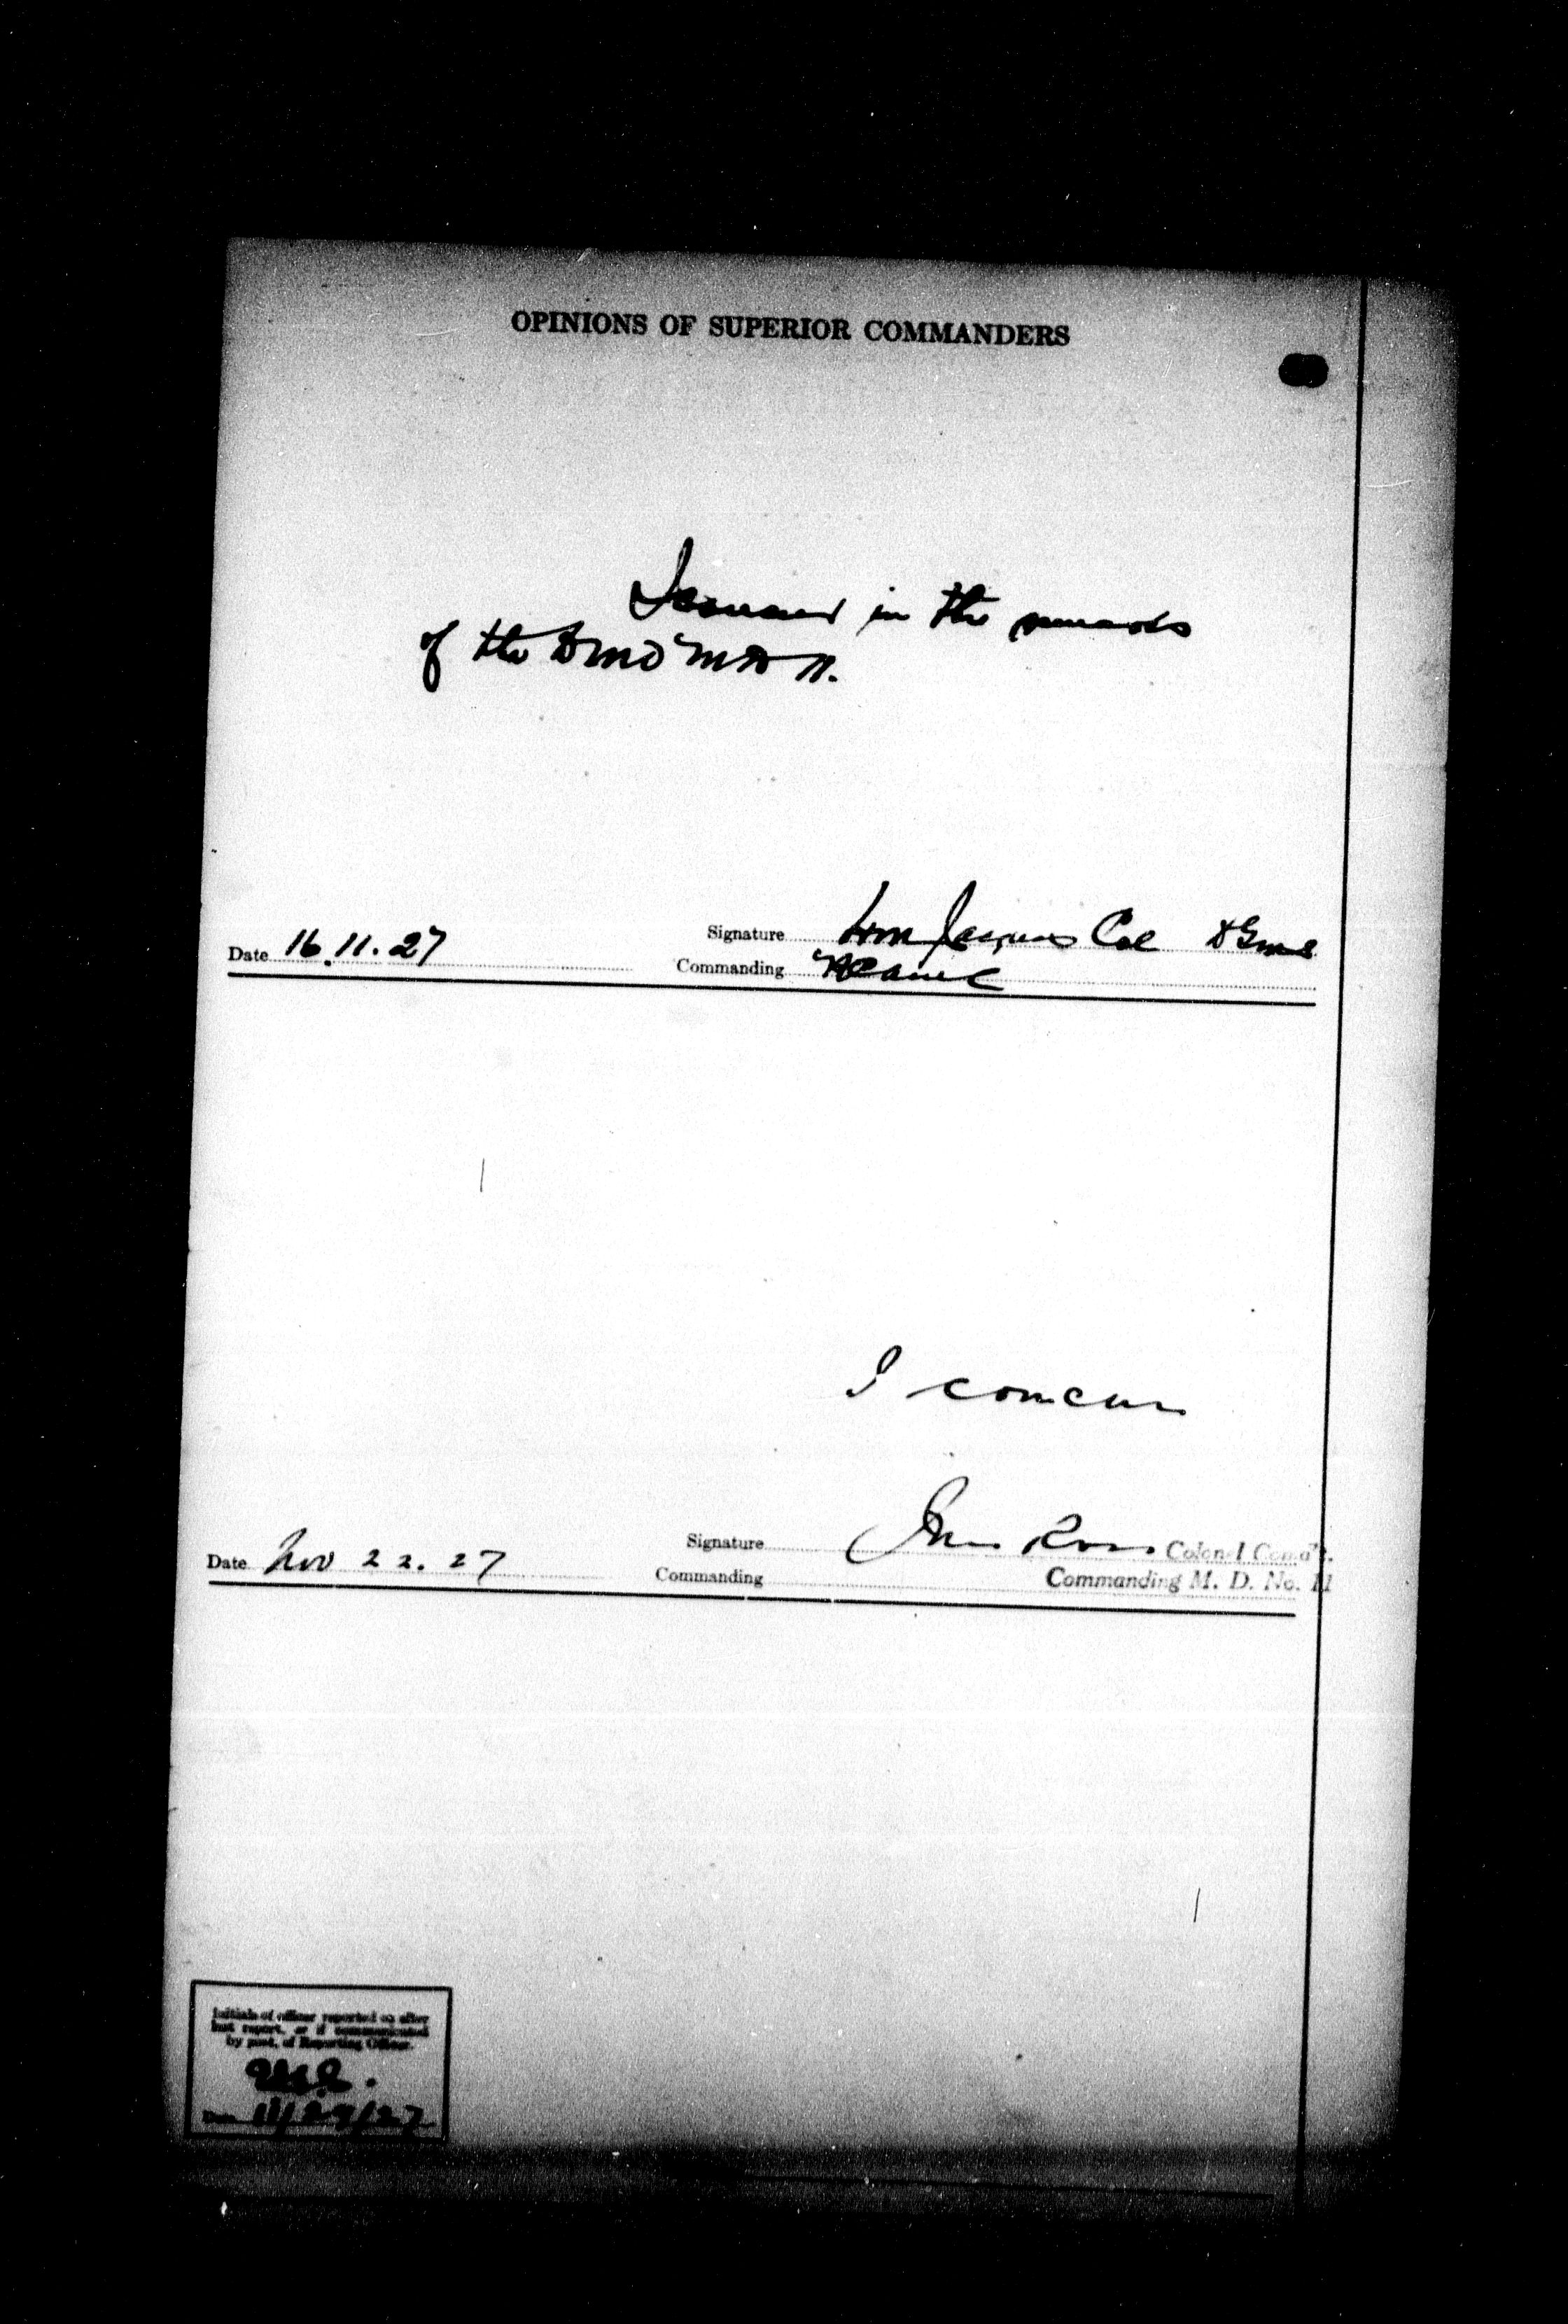 OPINIONS OF SUPERIOR COMMANDERS
I concur in the remarks
of the DMO MD 11.
Date 16.11.27
Signature Col DGMS
Commanding RCAMC
I concur
Date Nov 22.27
Signature Ross Colonel Comd't.
Commanding Commanding M. D. No. 11
Initials of officer reported on after
last report, or if communicated
by post, of Reporting Officer.
Date 11/29/27